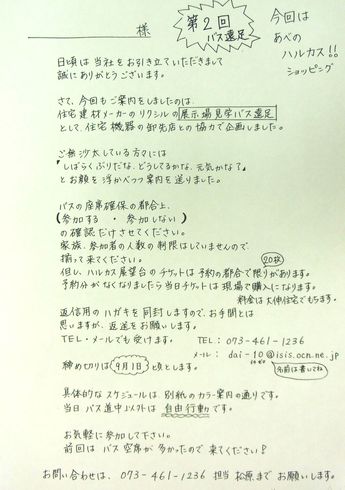 様
第2回
バス遠足
今回は
あべの
ハルカス!!
ショッピング
日頃は当社をお引き立ていただきまして
誠にありがとうございます。
さて、今回もご案内をしましたのは、
住宅建材メーカーのリクシルの展示場見学バス遠足
として、住宅機器の卸先店との協力で企画しました。
ご無沙汰している方々には
「しばらくぶりだな、どうしてるかな、元気かなぁ」
とお顔を浮かべつつ案内を送りました。
バスの座席確保の都合上、
(参加する ・ 参加しない)
の確認だけさせてください。
家族、参加者の人数の制限はしていませんので、
揃って来てください。
20枚
但し、ハルカス展望台のチケットは予約の都合で限りがあります。
予約分がなくなりましたら当日チケットは現場で購入になります。
料金は大伸住宅でもちます。
返信用のハガキを同封しますので、お手間とは
思いますが、返送をお願いします。
TEL・メールでも受けます。 TEL : 073-461-1236
メール : dai-10@isis.ocn.ne.jp
名前は書いてね
締め切りは9月1日頃とします。
具体的なスケジュールは別紙のカラー案内の通りです。
当日バス道中以外は自由行動です。
お気軽に参加して下さい。
前回はバス空席が多かったので来てください!
お問い合わせは、073-461-1236 担当 松原までお願いします。